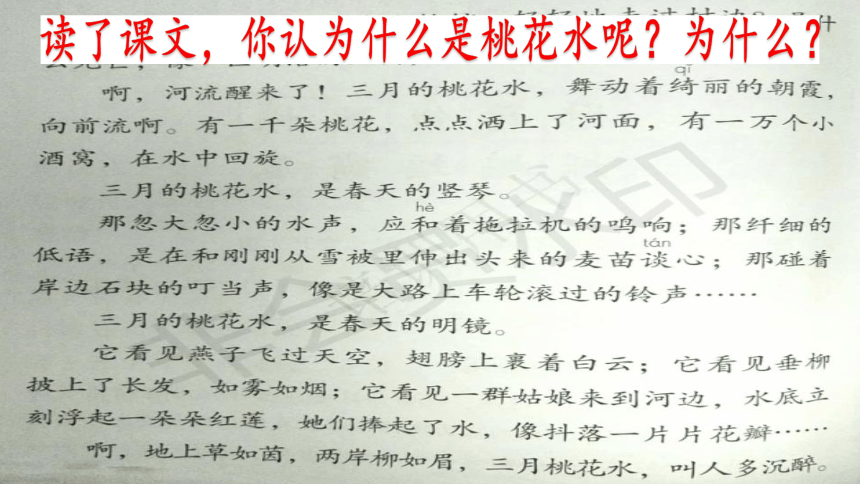 读了课文，你认为什么是桃花水呢？为什么？
什
qǐ
啊，河流醒来了！三月的桃花水，舞动着绮丽的朝霞，
向前流啊。有一千朵桃花，点点洒上了河面，有一万个小
酒窝，在水中回旋。
三月的桃花水，是春天的竖琴。
hè
那忽大忽小的水声，应和着拖拉机的鸣响；那纤细的
tán
低语，是在和刚刚从雪被里伸出头来的麦苗谈心；那碰着
岸边石块的叮当声，像是大路上车轮滚过的铃声……
三月的桃花水，是春天的明镜。
它看见燕子飞过天空，翅膀上裹着白云；它看见垂柳
披上了长发，如雾如烟；它看见一群姑娘来到河边，水底立
刻浮起一朵朵红莲，她们捧起了水，像抖落一片片花瓣……
啊，地上草如茵，两岸柳如眉，三月桃花水，叫人多沉醉。